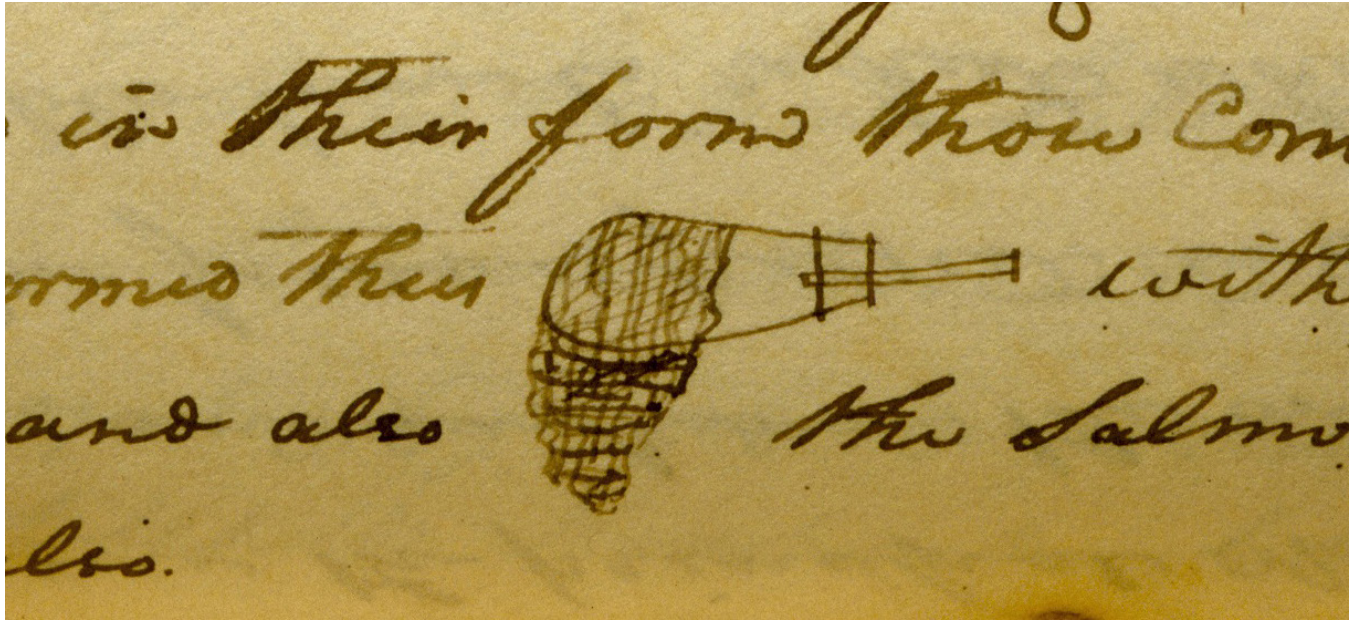 in their form those Com
ormed thus with
and also the Salmo
also.